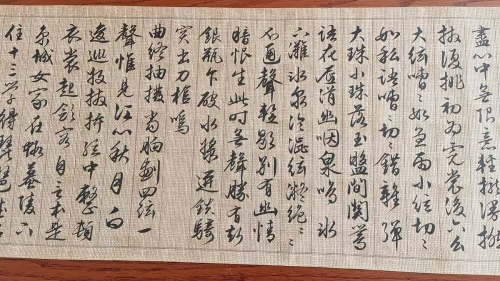 盡心中無限意輕攏慢撚
抹復挑初為霓裳後六么
大弦嘈〻如急雨小弦切〻
如私語嘈〻切〻錯雜彈
大珠小珠落玉盤間關鶯
語花底滑幽咽泉鳴氷
下灘氷泉冷澀弦凝絕〻
不通聲暫歇別有幽情
暗恨生此時無聲勝有聲
銀瓶乍破水漿迸鐵騎
突出刀槍鳴
曲終抽撥當胸劃四弦一
聲惟見江心秋月白
逡巡放撥插弦中整頓
衣裳起斂容自言本是
京城女家在蝦蟇陵下
住十三學得琵琶成